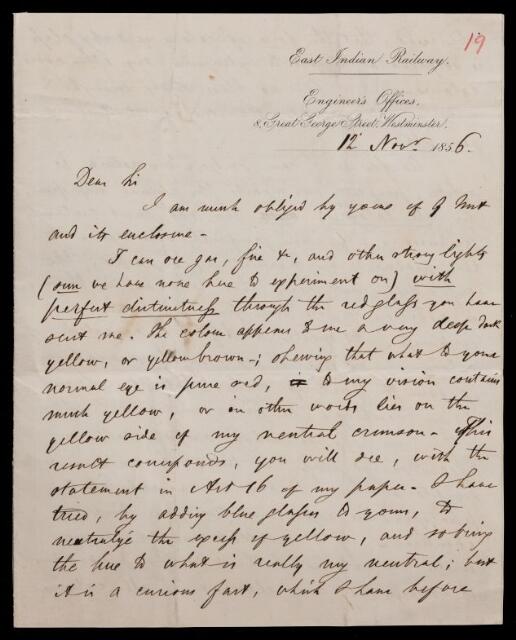 19
East Indian Railway.
Engineer's Offices,
8, Great George Street, Westminster.
12 Novr. 1856.
Dear Sir
I am much obliged by yours of 9 Inst
and its enclosure -
I can see gas, fire &c, and other strong lights
(sun we have none here to experiment on) with
perfect distinctness through the red glass you have
sent me. The colour appears to me a very deep dark
yellow, or yellow brown -; shewing that what to your
normal eye is pure red, to my vision contains
much yellow, or in other words lies on the
yellow side of my neutral crimson - This
result corresponds, you will see, with the
statement in Art 16 of my paper - I have
tried, by adding blue glasses to yours, to
neutralize the excess of yellow, and so bring
the hue to what is really my neutral; but
it is a curious fact, which I have before